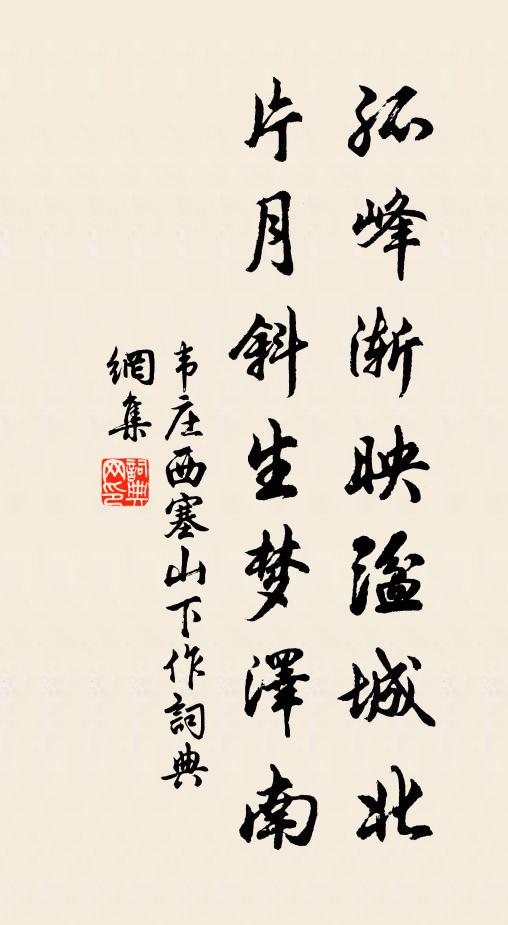 孤峰渐映溢城北
片月斜生梦澤南
韦庄西塞山下作詞典
網集
詞典
网印